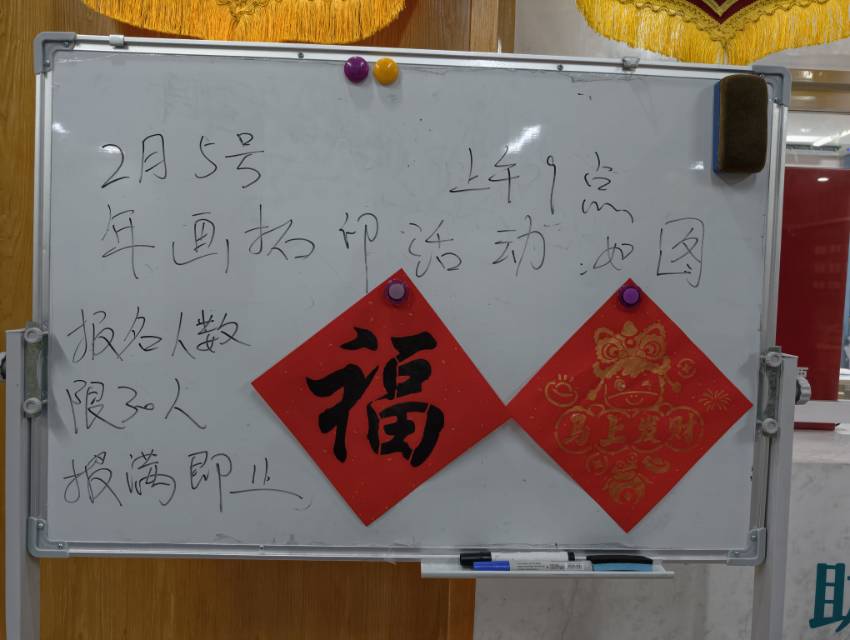 2月5号 上午9点
年画拓印活动如图
报名人数
限30人
报满即止
福
马上发财